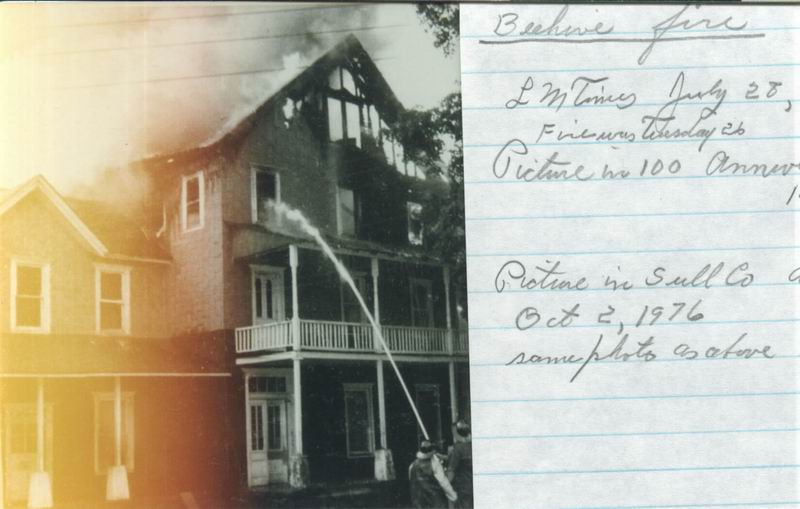 Beehive fire
L M Times July 28,
Fire was Tuesday 26
Picture in 100 Anniv
1
Picture in Sull Co a
Oct 2, 1976
same photo as above